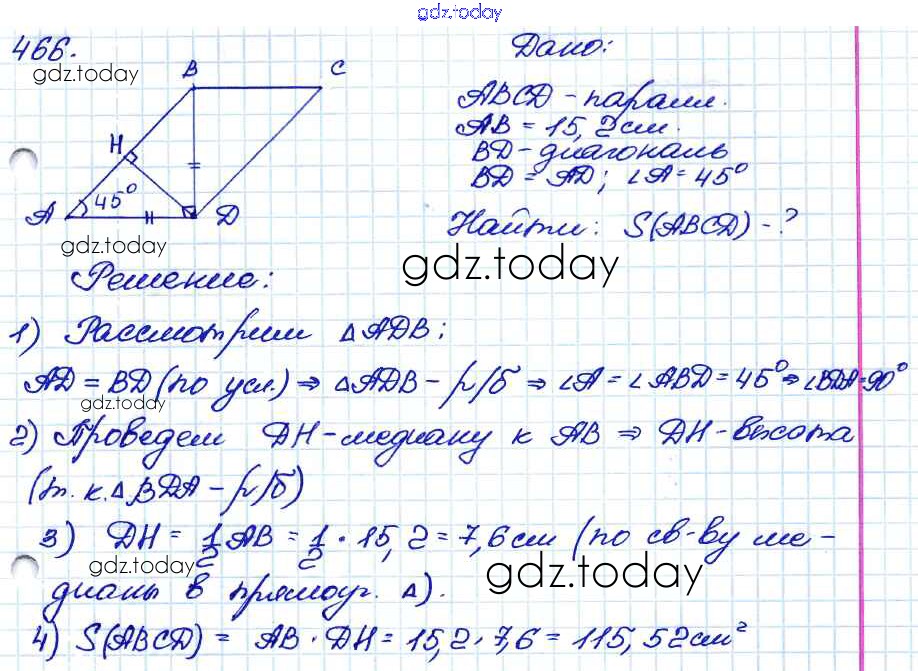 gdz.today
466.
gdz.today
B
C
H
A
45°
D
gdz.today
Дано:
ABCD - паралл.
AB = 15,2 см.
BD - диагональ
BD = AD; ∠A = 45°
Найти: S(ABCD) - ?
gdz.today
Решение:
1) Рассмотрим △ADB:
AD = BD (по усл.) ⇒ △ADB - р/б ⇒ ∠A = ∠ABD = 45° ⇒ ∠BDA = 90°
gdz.today
2) Проведем DH - медиану к AB ⇒ DH - высота
(т. к. △BDA - р/б)
3) DH = 1/2 AB = 1/2 · 15,2 = 7,6 см (по св-ву ме-
gdz.today
gdz.today
дианы в прямоуг. △).
4) S(ABCD) = AB · DH = 15,2 · 7,6 = 115,52 см²